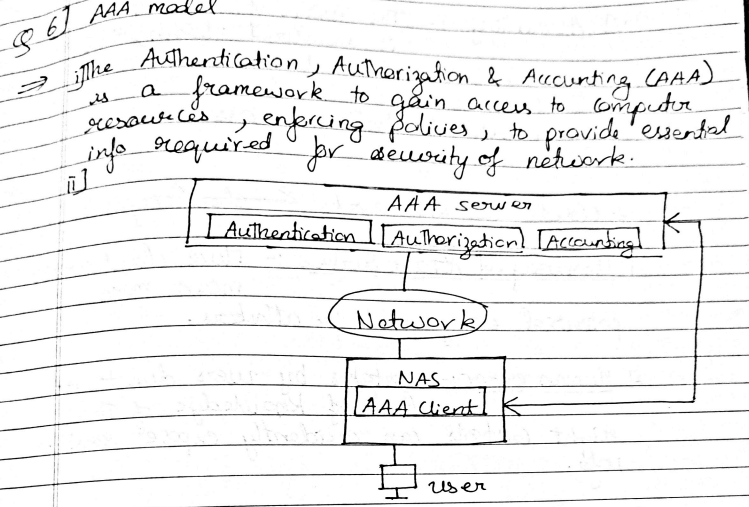 Q 6] AAA model
⇒ i] The Authentication, Authorization & Accounting (AAA)
is a framework to gain access to computer
resources, enforcing policies, to provide essential
info required for security of network.
ii]
AAA server
Authentication Authorization Accounting
Network
NAS
AAA Client
user